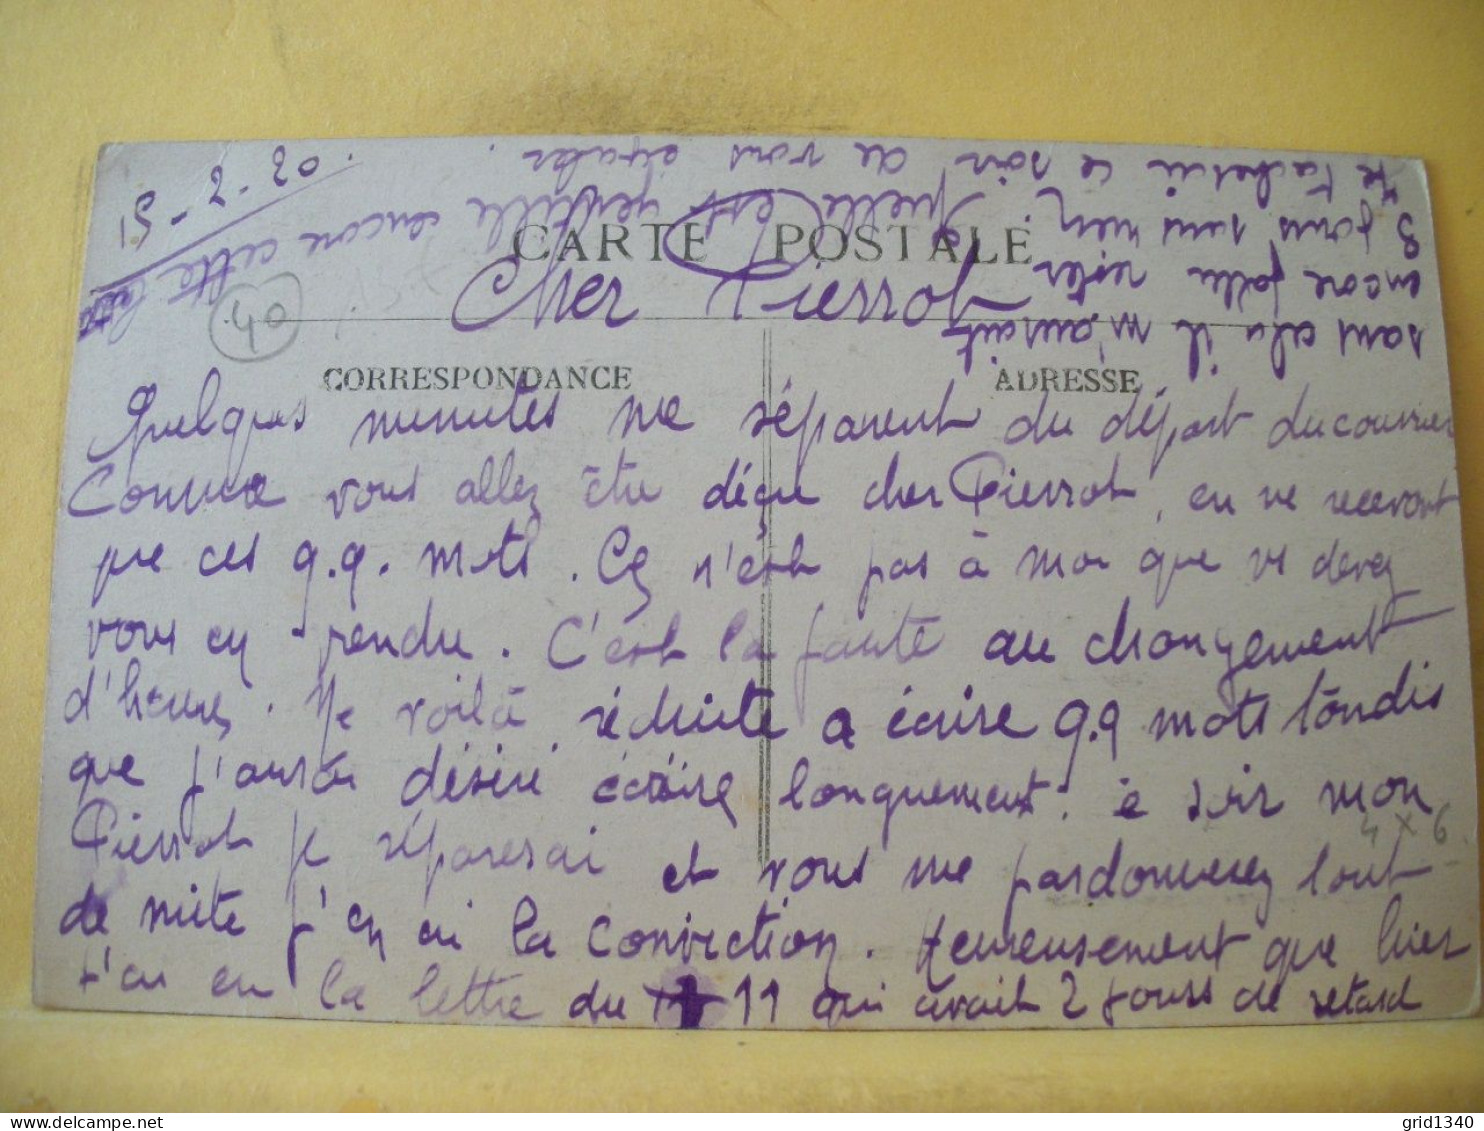 15-2-20.
CARTE POSTALE
Cher Pierrot
40
CORRESPONDANCE
ADRESSE
Quelques minutes me séparent du départ du courrier
Comme vous allez être déçu cher Pierrot, en ne recevant
que ces q.q. mots. Ce n'est pas à moi que vs devez
vous en prendre. C'est la faute au changement
d'heures. Me voilà réduite a écrire q.q mots tandis
que j'aurai désiré écrire longuement. Ce soir mon
Pierrot je réparerai et vous me pardonnerez tout
de suite j'en ai la conviction. Heureusement que hier
j'ai eu la lettre du 11 qui avait 2 jours de retard
sans cela il m'aurait
encore fallu rester
3 jours sans rien
Je tacherai ce soir de vous épater.
Quelle est gentille encore cette
4 x 6
grid1340